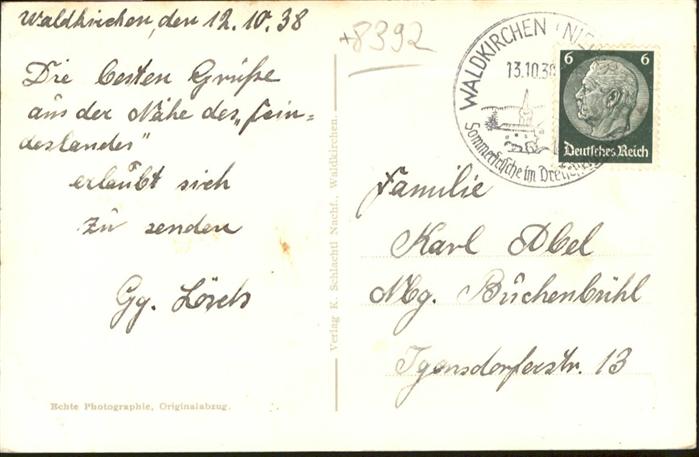 Waldkirchen, den 12.10.38
Die besten Grüße
aus der Nähe des „Fein=
deslandes"
erlaubt sich
zu senden
Gg. Lösch
Echte Photographie, Originalabzug.
Verlag K. Schlachtl Nachf., Waldkirchen.
+8392
WALDKIRCHEN (NI
13.10.38
Sommerfrische im Drei
6 6
Deutsches Reich
Familie
Karl Abel
Nbg. Buchenbühl
Igensdorferstr. 13